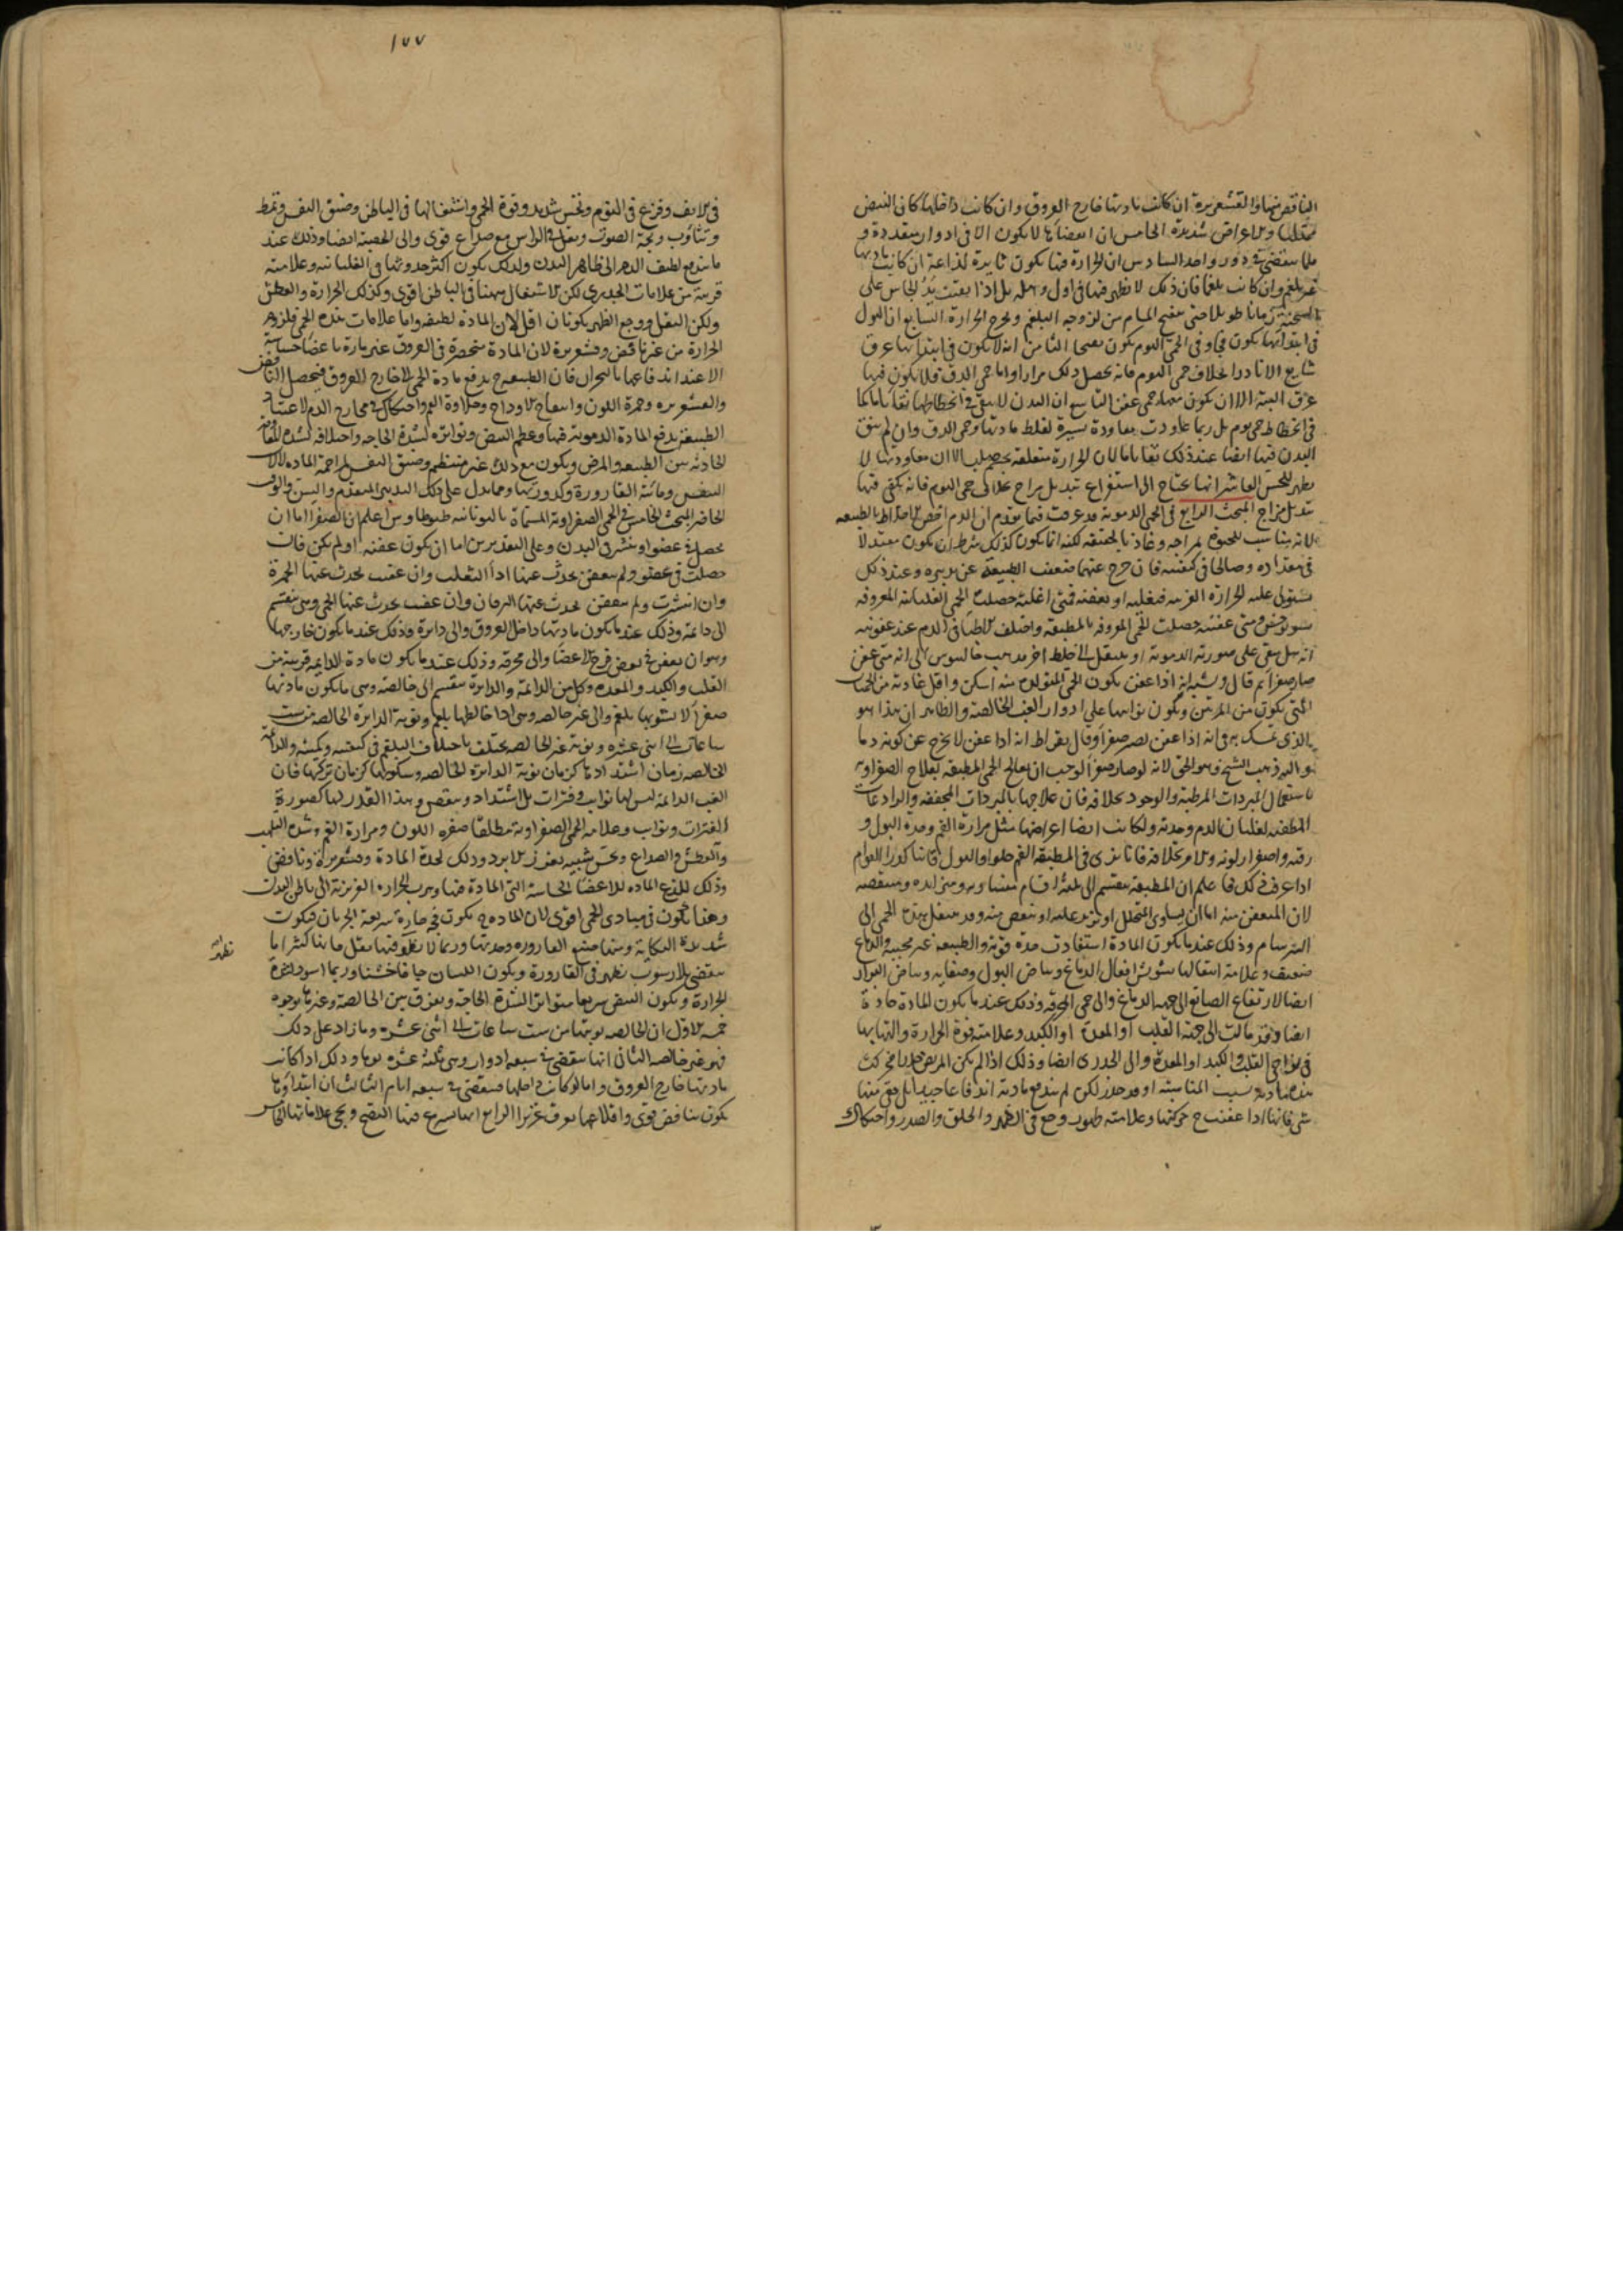 النافض فيها والقشعريرة ان كانت مادتها خارج العروق وان كانت داخلها كان النبض
مختلفا والاعراض شديدة الخامس ان انقضاها لا يكون الا في ادوار متعددة و
ينقضي في دور واحد السادس ان الحرارة فيها يكون لذاعة ان كانت مادتها
غير بلغم وان كانت بلغما فان ذلك لا يظهر فيها في اول بل اذا بقيت يد الجاس على
زمانا طويلا حتى ينفتح المسام من لزوجة البلغم ويخرج الحرارة السابع ان البول
في ابتدائها يكون فجا وفي الحمى اليوم يكون الثامن انه لا يكون في ابتدائها عرق
شايع الا نادرا بخلاف حمى اليوم فانه يحصل ذلك مرارا واما حمى الدق فلا يكون فيها
عرق البتة الا ان يكون معها حمى عفن التاسع ان البدن لا ينقى في انحطاطها نقاء تاما كما
في انحطاط حمى يوم بل ربما عاودت معاودة يسيرة لغلظ مادتها وحمى الدق وان لم ينق
البدن فيها ايضا عند ذلك نقاء تاما لان الحرارة متعلقة الا ان معاودتها لا
يظهر للحس العاشر انها يحتاج الى استفراغ تبديل مزاج بخلاف حمى اليوم فانه يكفي فيها
تبديل مزاج المبحث الرابع في الحمى الدموية قد عرفت فيما تقدم ان الدم اخص الاخلاط بالطبيعة
لانه مناسب للحيوة بمزاجه وغاذ بالحقيقة لكنه انما يكون كذلك بشرط ان يكون معتدلا
في مقداره وصالحا في كيفيته فان خرج عنهما ضعفت الطبيعة عن تدبيره وعند ذلك
يستولي عليه الحرارة الغريبة فتغليه او تعفنه فمتى اغلته حصلت الحمى الغليانية المعروفة
بسونوخس ومتى عفنته حصلت الحمى المعروفة بالمطبقة واختلف الاطباء في الدم عند عفونته
انه هل يبقى على صورته الدموية او ينتقل الى خلط اخر فذهب جالينوس الى انه متى عفن
صار صفراء ثم قال ويشبه انه اذا عفن يكون الحمى المتولدة منه اسكن واقل عادية من الحميات
التي يكون من المرتين ويكون نوابها على ادوار الغب الخالصة والظاهر ان هذا هو
الذي تمسك به في انه اذا عفن يصير صفراء وقال بقراط انه اذا عفن لا يخرج عن كونه دما
واليه ذهب الشيخ وهو الحق لانه لو صار صفراء لوجب ان يعالج الحمى المطبقة بعلاج الصفراوية
باستعمال المبردات المرطبة والوجود بخلافه فان علاجها بالمبردات المجففة والرادعات
المطفئة لغليان الدم وحدته ولكانت ايضا اعراضها مثل مرارة الفم وحدة البول و
رقته واصفرار لونه والامر بخلافه فانا نرى في المطبقة الفم حلوا والبول قانيا كدرا القوام
اذا عرفت ذلك فاعلم ان المطبقة ينقسم الى ثلثة اقسام متساوية ومتزايدة ومتنقصة
لان المتعفن منه اما ان يساوي المتحلل او يزيد عليه او ينقص منه وقد ينتقل هذه الحمى الى
السرسام وذلك عند ما يكون المادة استفادت حدة قوية والطبيعة غير مجيبة والدماغ
ضعيف وعلامة انتقالها تشوش افعال الدماغ وبياض البول وصفائه وبياض البراز
ايضا لارتفاع الصابغ الى جهة الدماغ والى حمى المحرقة وذلك عند ما يكون المادة حادة
ايضا وقد مالت الى جهة القلب او المعدة او الكبد وعلامته قوة الحرارة والتهابها
في نواحي القلب والكبد او المعدة والى الجدري ايضا وذلك اذا لم يكن المريض فحركت
مادته بسبب المناسبة او قد جدر لكن لم يندفع مادته اندفاعا جيدا بل بقي منها
شيء فانها اذا عفنت ح حركتها وعلامته وجع في الظهر والحلق والصدر واحتكاك
١٧٧
في الانف وفزع في النوم ونخس شديد وقوة الحمى واشتغالها في الباطن وضيق النفس وتمط
وتثاوب وبحة الصوت وثقل في الراس مع صداع قوي والى الحصبة ايضا وذلك عند
ما يندفع لطيف الدم الى ظاهر البدن ولذلك يكون اكثر حدوثها في الغليانية وعلامته
قريبة من علامات الجدري لكن الاشتعال ههنا في الباطن اقوى وكذلك الحرارة والعطش
ولكن الثقل ووجع الظهر يكونان اقل لان المادة لطيفة واما علامات هذه الحمى فلزوم
الحرارة من غير نافض وقشعريرة لان المادة منحصرة في العروق غير مارة باعضا حساسة
الا عند اندفاعها بالبحران فان الطبيعة ح يدفع مادة الحمى الى خارج العروق فيحصل النافض
والقشعريرة وحمرة اللون وانتفاخ الاوداج وحلاوة الفم واحتكاك في مخارج الدم لاعتياد
الطبيعة بدفع المادة الدموية فيها وعظم النبض وتواتره لشدة الحاجة واختلافه لشدة المقاومة
الحادثة بين الطبيعة والمرض ويكون مع ذلك غير منتظم وضيق النفس لمزاحمة المادة لالات
التنفس ومائية القارورة وكدورتها ومما يدل على ذلك التدبير المتقدم والسن والوقت
الحاضر المبحث الخامس في الحمى الصفراوية المسماة باليونانية طيطاوس اعلم ان الصفراء اما ان
يحصل في عضو او ينتشر في البدن وعلى التقديرين اما ان يكون عفنة او لم يكن فان
حصلت في عضو ولم يتعفن يحدث عنها داء الثعلب وان عفنت يحدث عنها الحمرة
وان انتشرت ولم يتعفن يحدث عنها اليرقان وان عفنت يحدث عنها الحمى وهي ينقسم
الى دائمة وذلك عند ما يكون مادتها داخل العروق والى دائرة وذلك عند ما يكون خارجها
وهو ان يعفن في بعض فرج الاعضا والى محرقة وذلك عند ما يكون مادة الدائمة قريبة من
القلب والكبد والمعدة وكل من الدائمة والدائرة ينقسم الى خالصة وهي ما يكون مادتها
صفراء لا يشوبها بلغم والى غير خالصة وهي اذا خالطها بلغم ونوبة الدائرة الخالصة من ست
ساعات الى اثني عشرة ونوبة غير الخالصة يختلف باختلاف البلغم في كيفيته وكميته والدائمة
الخالصة زمان اشتدادها كزمان نوبة الدائرة الخالصة وسكونها كزمان تركها فان
الغب الدائمة ليس لها نوايب وفترات بل اشتداد وتنقص وهذا القدر لها كصورة
الفترات ونواب وعلامة الحمى الصفراوية مطلقا صفرة اللون ومرارة الفم وشدة التلهب
والعطش والصداع ونخس شبيه بغرز الابر وذلك لحدة المادة وقشعريرة ونافض
وذلك للذع المادة للاعضا الحاسة التي المادة فيها وهرب الحرارة الغريزية الى باطن البدن
وهنا يكون في مبادي الحمى اقوى لان المادة ح يكون فجة حارة سريعة الجريان فيكون
شديدة النكاية ومنها صبغ القارورة وحدتها وربما لا يظهر فيها ثقل فانها كثيرا ما
ينقضي بلا رسوب يظهر في القارورة ويكون اللسان جافا خشنا وربما اسود لقوة
الحرارة ويكون النبض سريعا متواترا لشدة الحاجة ويفرق بين الخالصة وغيرها بوجوه
خمسة الاول ان الخالصة نوبتها من ست ساعات الى اثني عشرة وما زاد على ذلك
فهو غير خالصة الثاني انها ينقضي في سبعة ادوار وهي ثلثة عشرة يوما وذلك اذا كانت
مادتها خارج العروق واما لو كانت داخلها فينقضي في سبعة ايام الثالث ان ابتداؤها
يكون بنافض قوي واقلاعها بعرق غزير الرابع انها يسرع فيها النضج ويجيء علاماتها الخامس